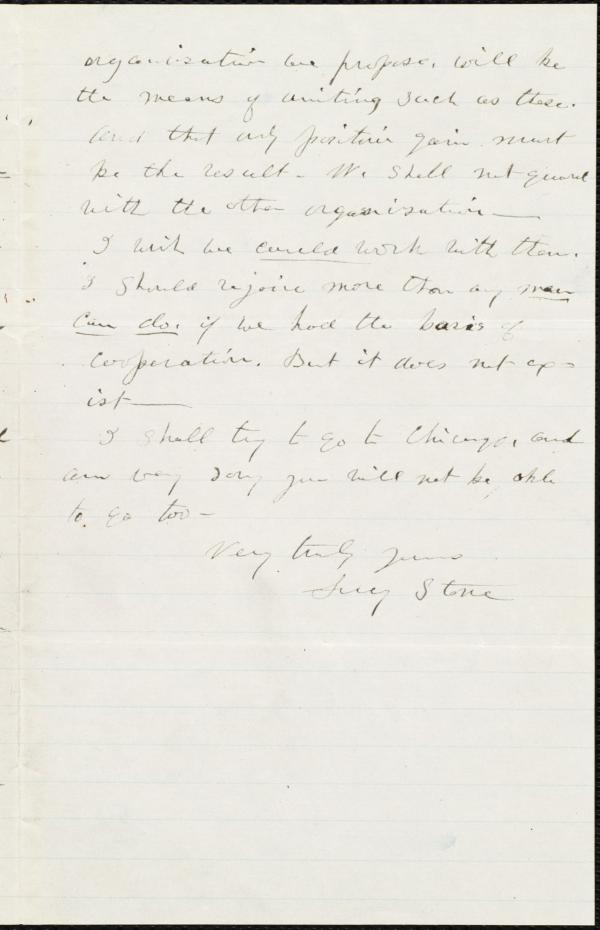 organisation we propose, will be
the means of uniting such as these.
and that only positive gain must
be the result - We shall not quarrel
with the other organisation—
I wish we could work with them.
I should rejoice more than any man
can do, if we had the basis of
cooperation. But it does not ex=
ist—
I shall try to go to Chicago, and
am very sorry you will not be able
to go too -
Very truly yours
Lucy Stone